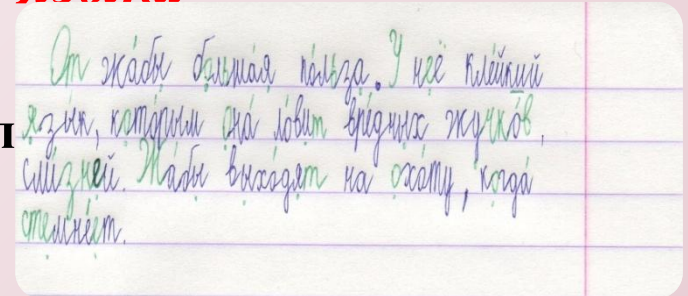 От жа́бы больша́я по́льза. У неё кле́йкий
язы́к, кото́рым она́ ло́вит вре́дных жучко́в,
сли́зней. Жа́бы выхо́дят на охо́ту, когда́
стемне́ет.